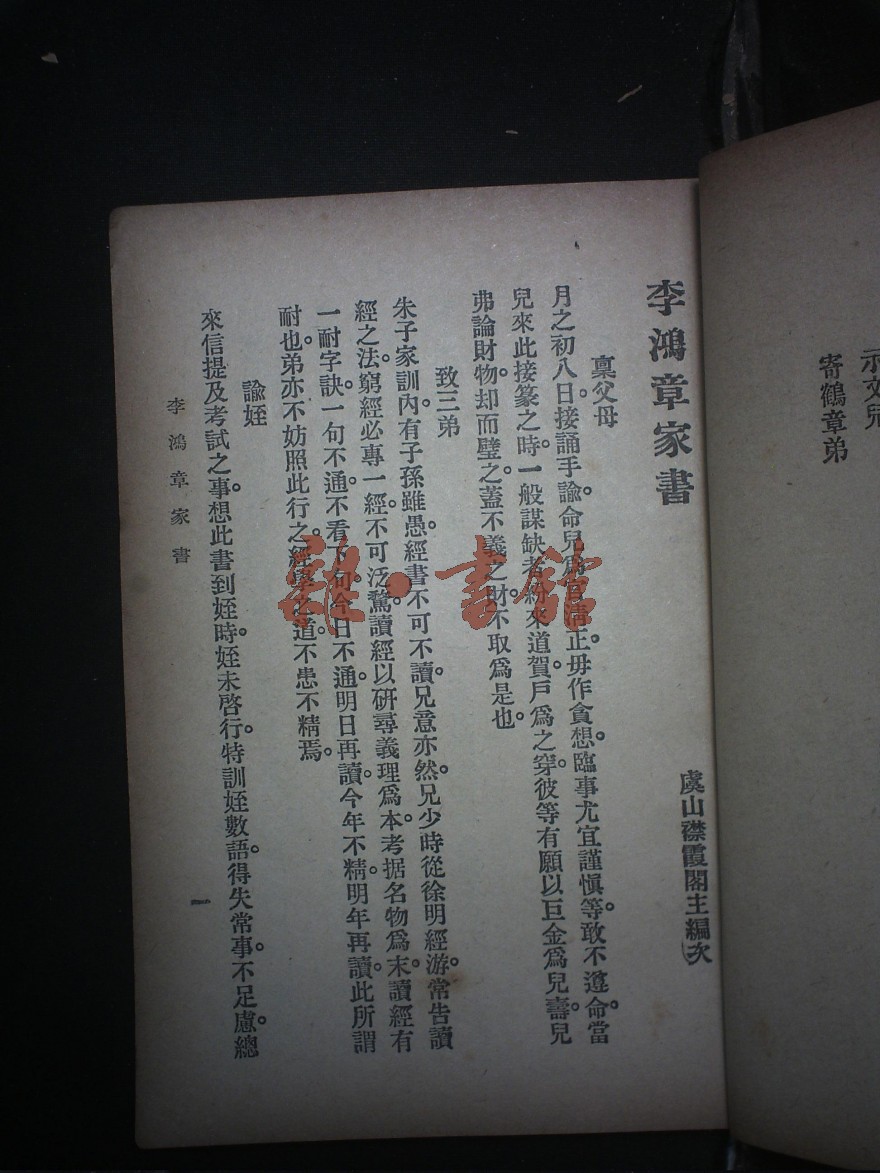 示文兒
寄鶴章弟
李鴻章家書
虞山襟霞閣主編次
稟父母
月之初八日。接誦手諭。命兒爲官淸正。毋作貪想。臨事尤宜謹愼等。敢不遵命。當
兒來此接篆之時。一般謀缺者。紛來道賀。戶爲之穿。彼等有願以巨金爲兒壽。兒
弗論財物。却而璧之。蓋不義之財。不取爲是也。
致三弟
朱子家訓內。有子孫雖愚。經書不可不讀。兄意亦然。兄少時從徐明經游。常告讀
經之法。窮經必專一經。不可泛騖。讀經以硏尋義理爲本。考据名物爲末。讀經有
一耐字訣。一句不通。不看下句。今日不通。明日再讀。今年不精。明年再讀。此所謂
耐也。弟亦不妨照此行之。經學之道。不患不精焉。
諭姪
來信提及考試之事。想此書到姪時。姪未啓行。特訓姪數語。得失常事。不足慮。總
李鴻章家書
一
雜·書館